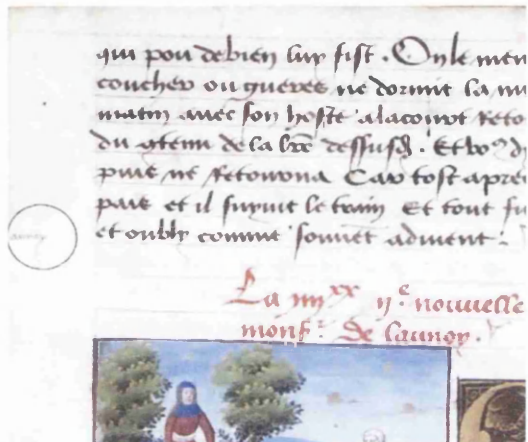 qui pou de bien luy fist . On le men
coucher ou gueres ne dormit la nu
matin avec son hoste a la court reto
du gtenu de la lre dessusd. Et vo9 d
puis ne retourna Car tost apre
pais et il suyvit le train Et tout fu
et oubly comme souvet advient .
La iiijxx ije nouvelle
monsr de launoy .